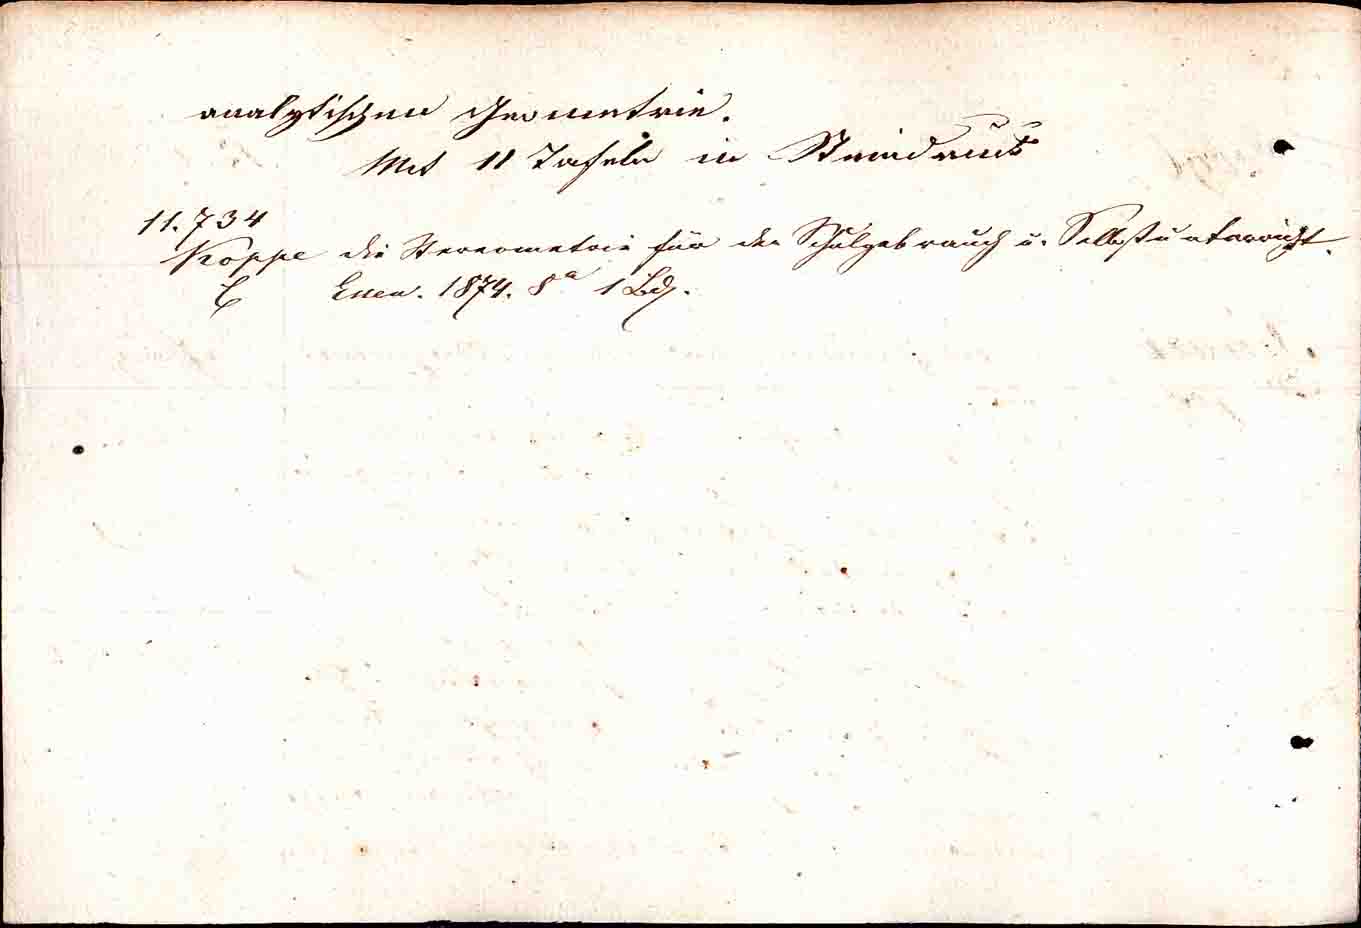 analytischen Geometrie.
Mit 11 Tafeln in Steindruck
11.734
Koppe die Stereometrie für den Schulgebrauch u. Selbstunterricht.
C Essen. 1874. 8° 1 Bd.